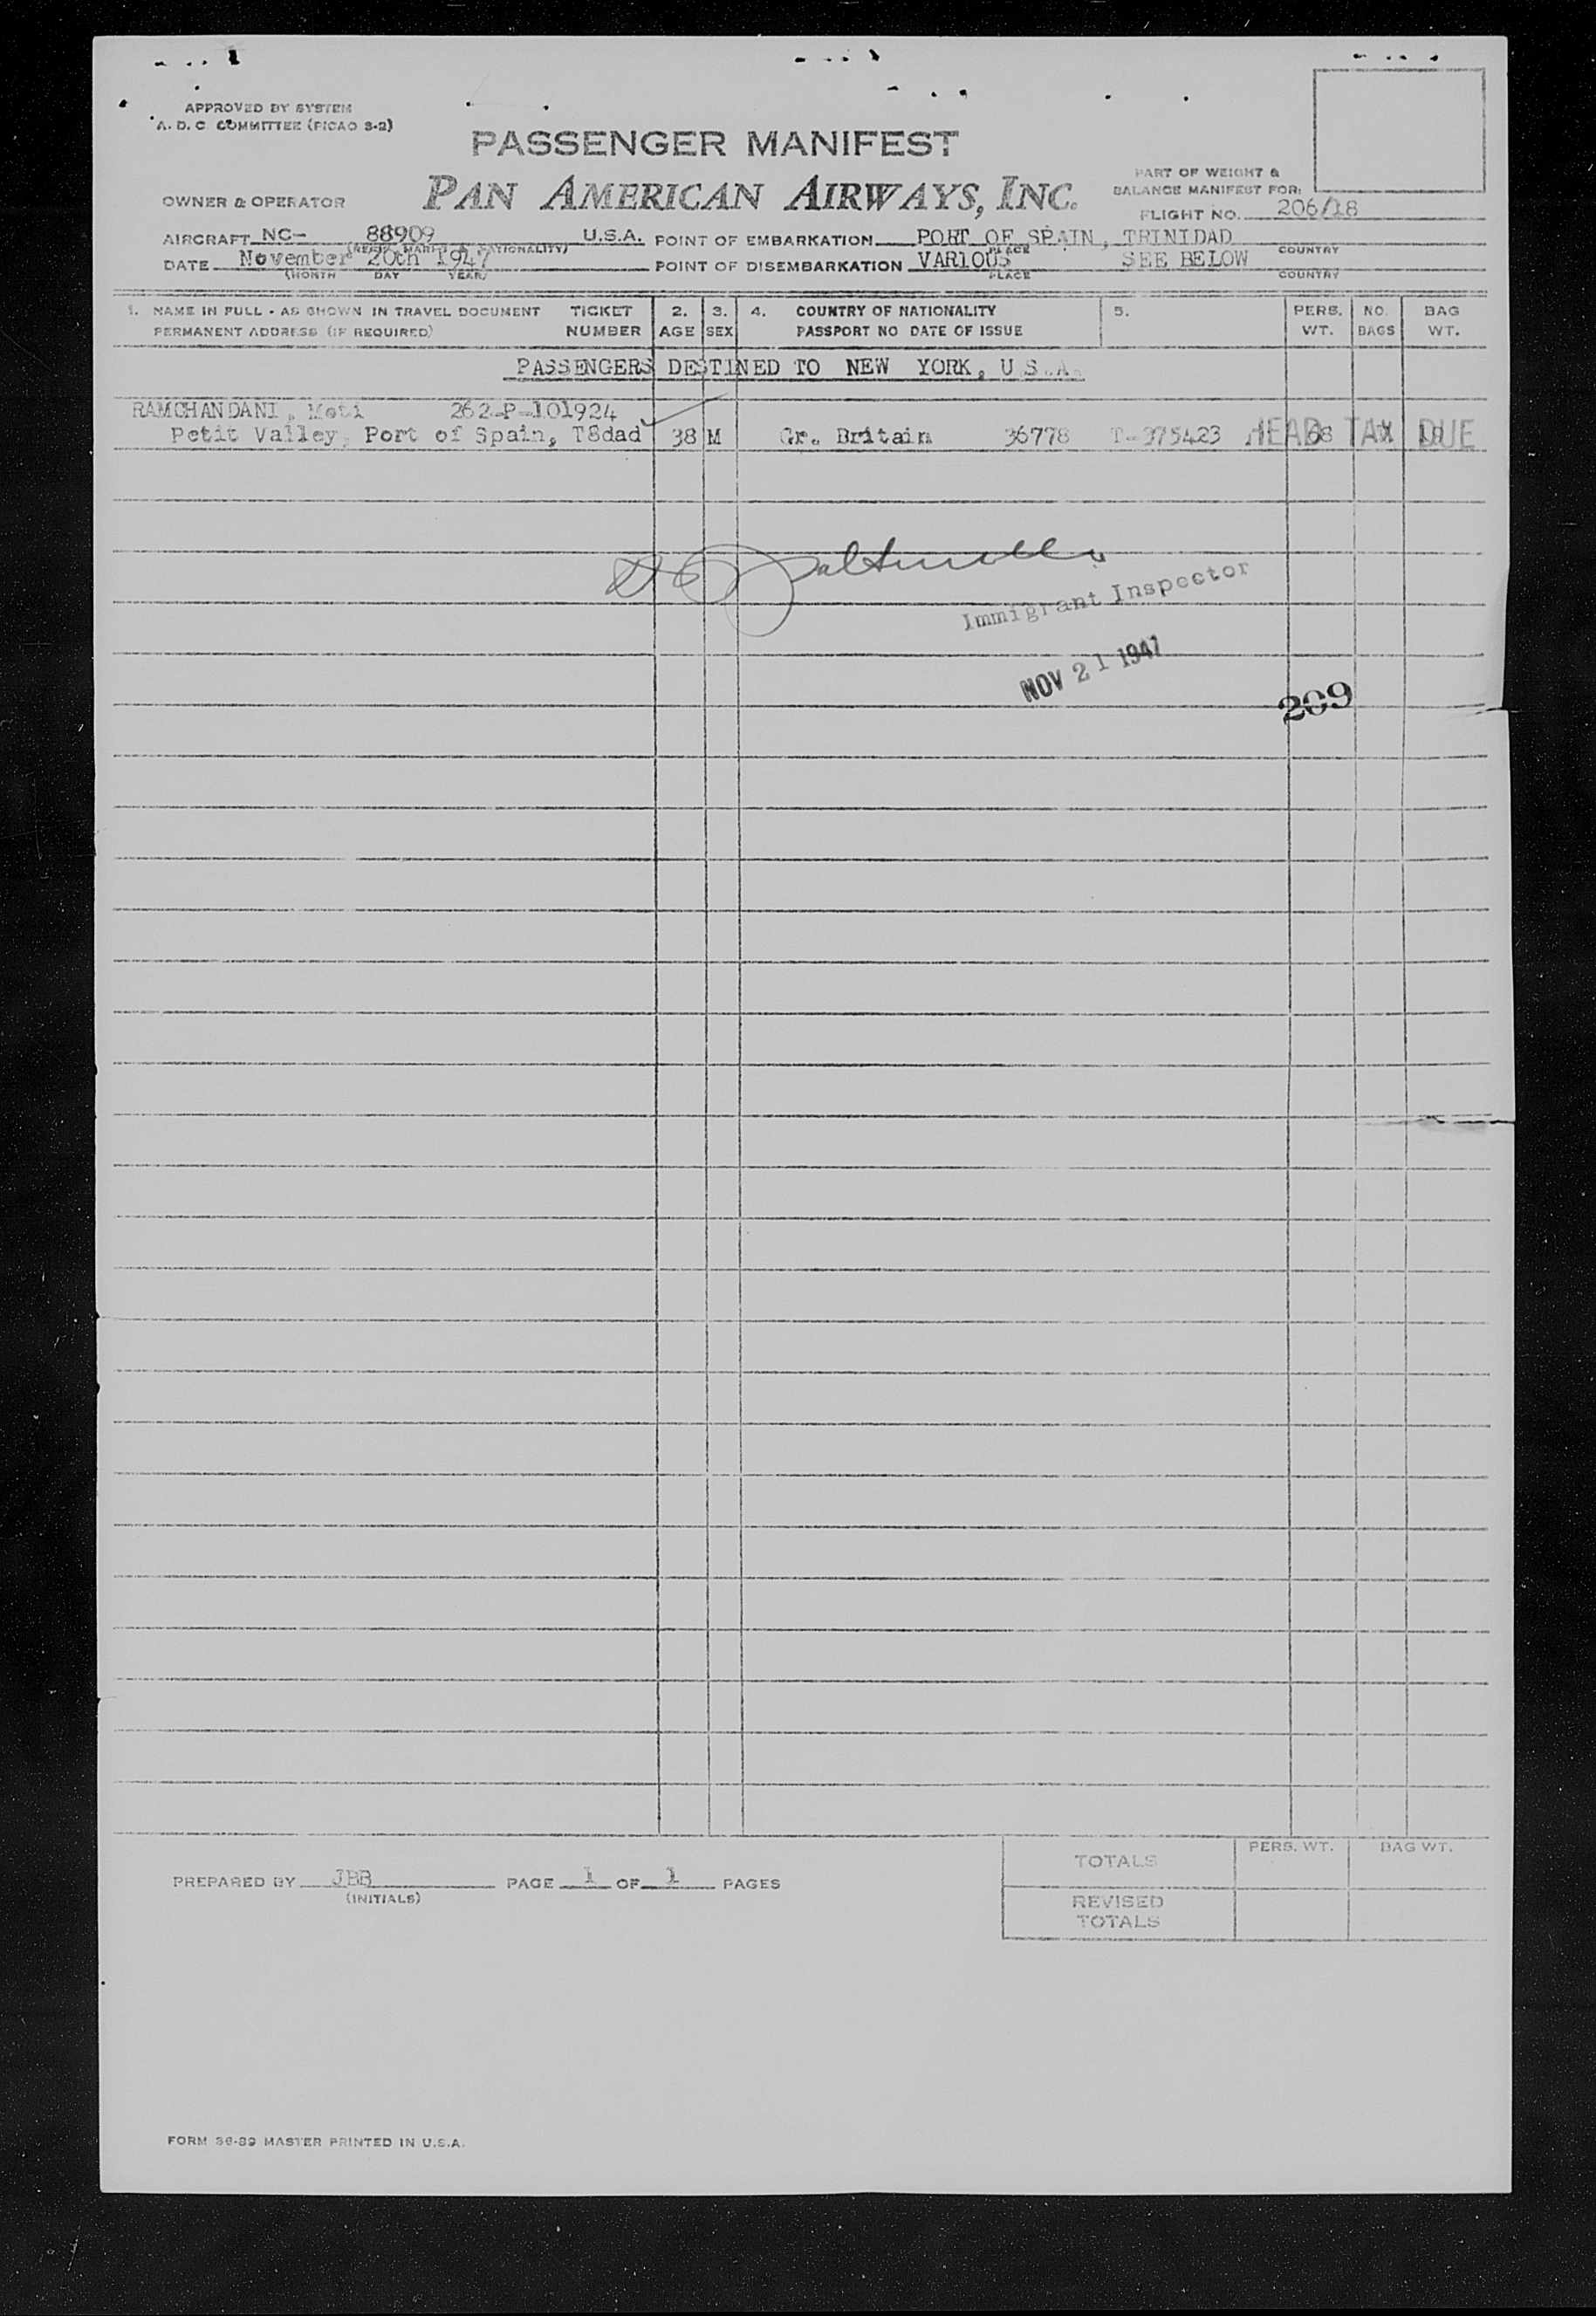 APPROVED BY SYSTEM
A. D. C. COMMITTEE (PICAO S-2)
PASSENGER MANIFEST
PAN AMERICAN AIRWAYS, INC.
PART OF WEIGHT &
BALANCE MANIFEST FOR:
OWNER & OPERATOR
FLIGHT NO. 206/18
AIRCRAFT NC- 88909 U.S.A. POINT OF EMBARKATION PORT OF SPAIN, TRINIDAD
PLACE COUNTRY
DATE November 20th 1947 POINT OF DISEMBARKATION VARIOUS SEE BELOW
(MONTH DAY YEAR) PLACE COUNTRY
1. NAME IN FULL - AS SHOWN IN TRAVEL DOCUMENT TICKET 2. 3. 4. COUNTRY OF NATIONALITY 5. PERS. NO. BAG
PERMANENT ADDRESS (IF REQUIRED) NUMBER AGE SEX PASSPORT NO DATE OF ISSUE WT. BAGS WT.
PASSENGERS DESTINED TO NEW YORK, U.S.A.
RAMCHANDANI, Moti 262-P-101924
Petit Valley, Port of Spain, T8dad 38 M Gr. Britain 36778 T-975423 HEAD TAX DUE
Immigrant Inspector
NOV 21 1947
209
PERS. WT. BAG WT.
TOTALS
PREPARED BY JBB PAGE 1 OF 1 PAGES
(INITIALS)
REVISED
TOTALS
FORM 36-89 MASTER PRINTED IN U.S.A.